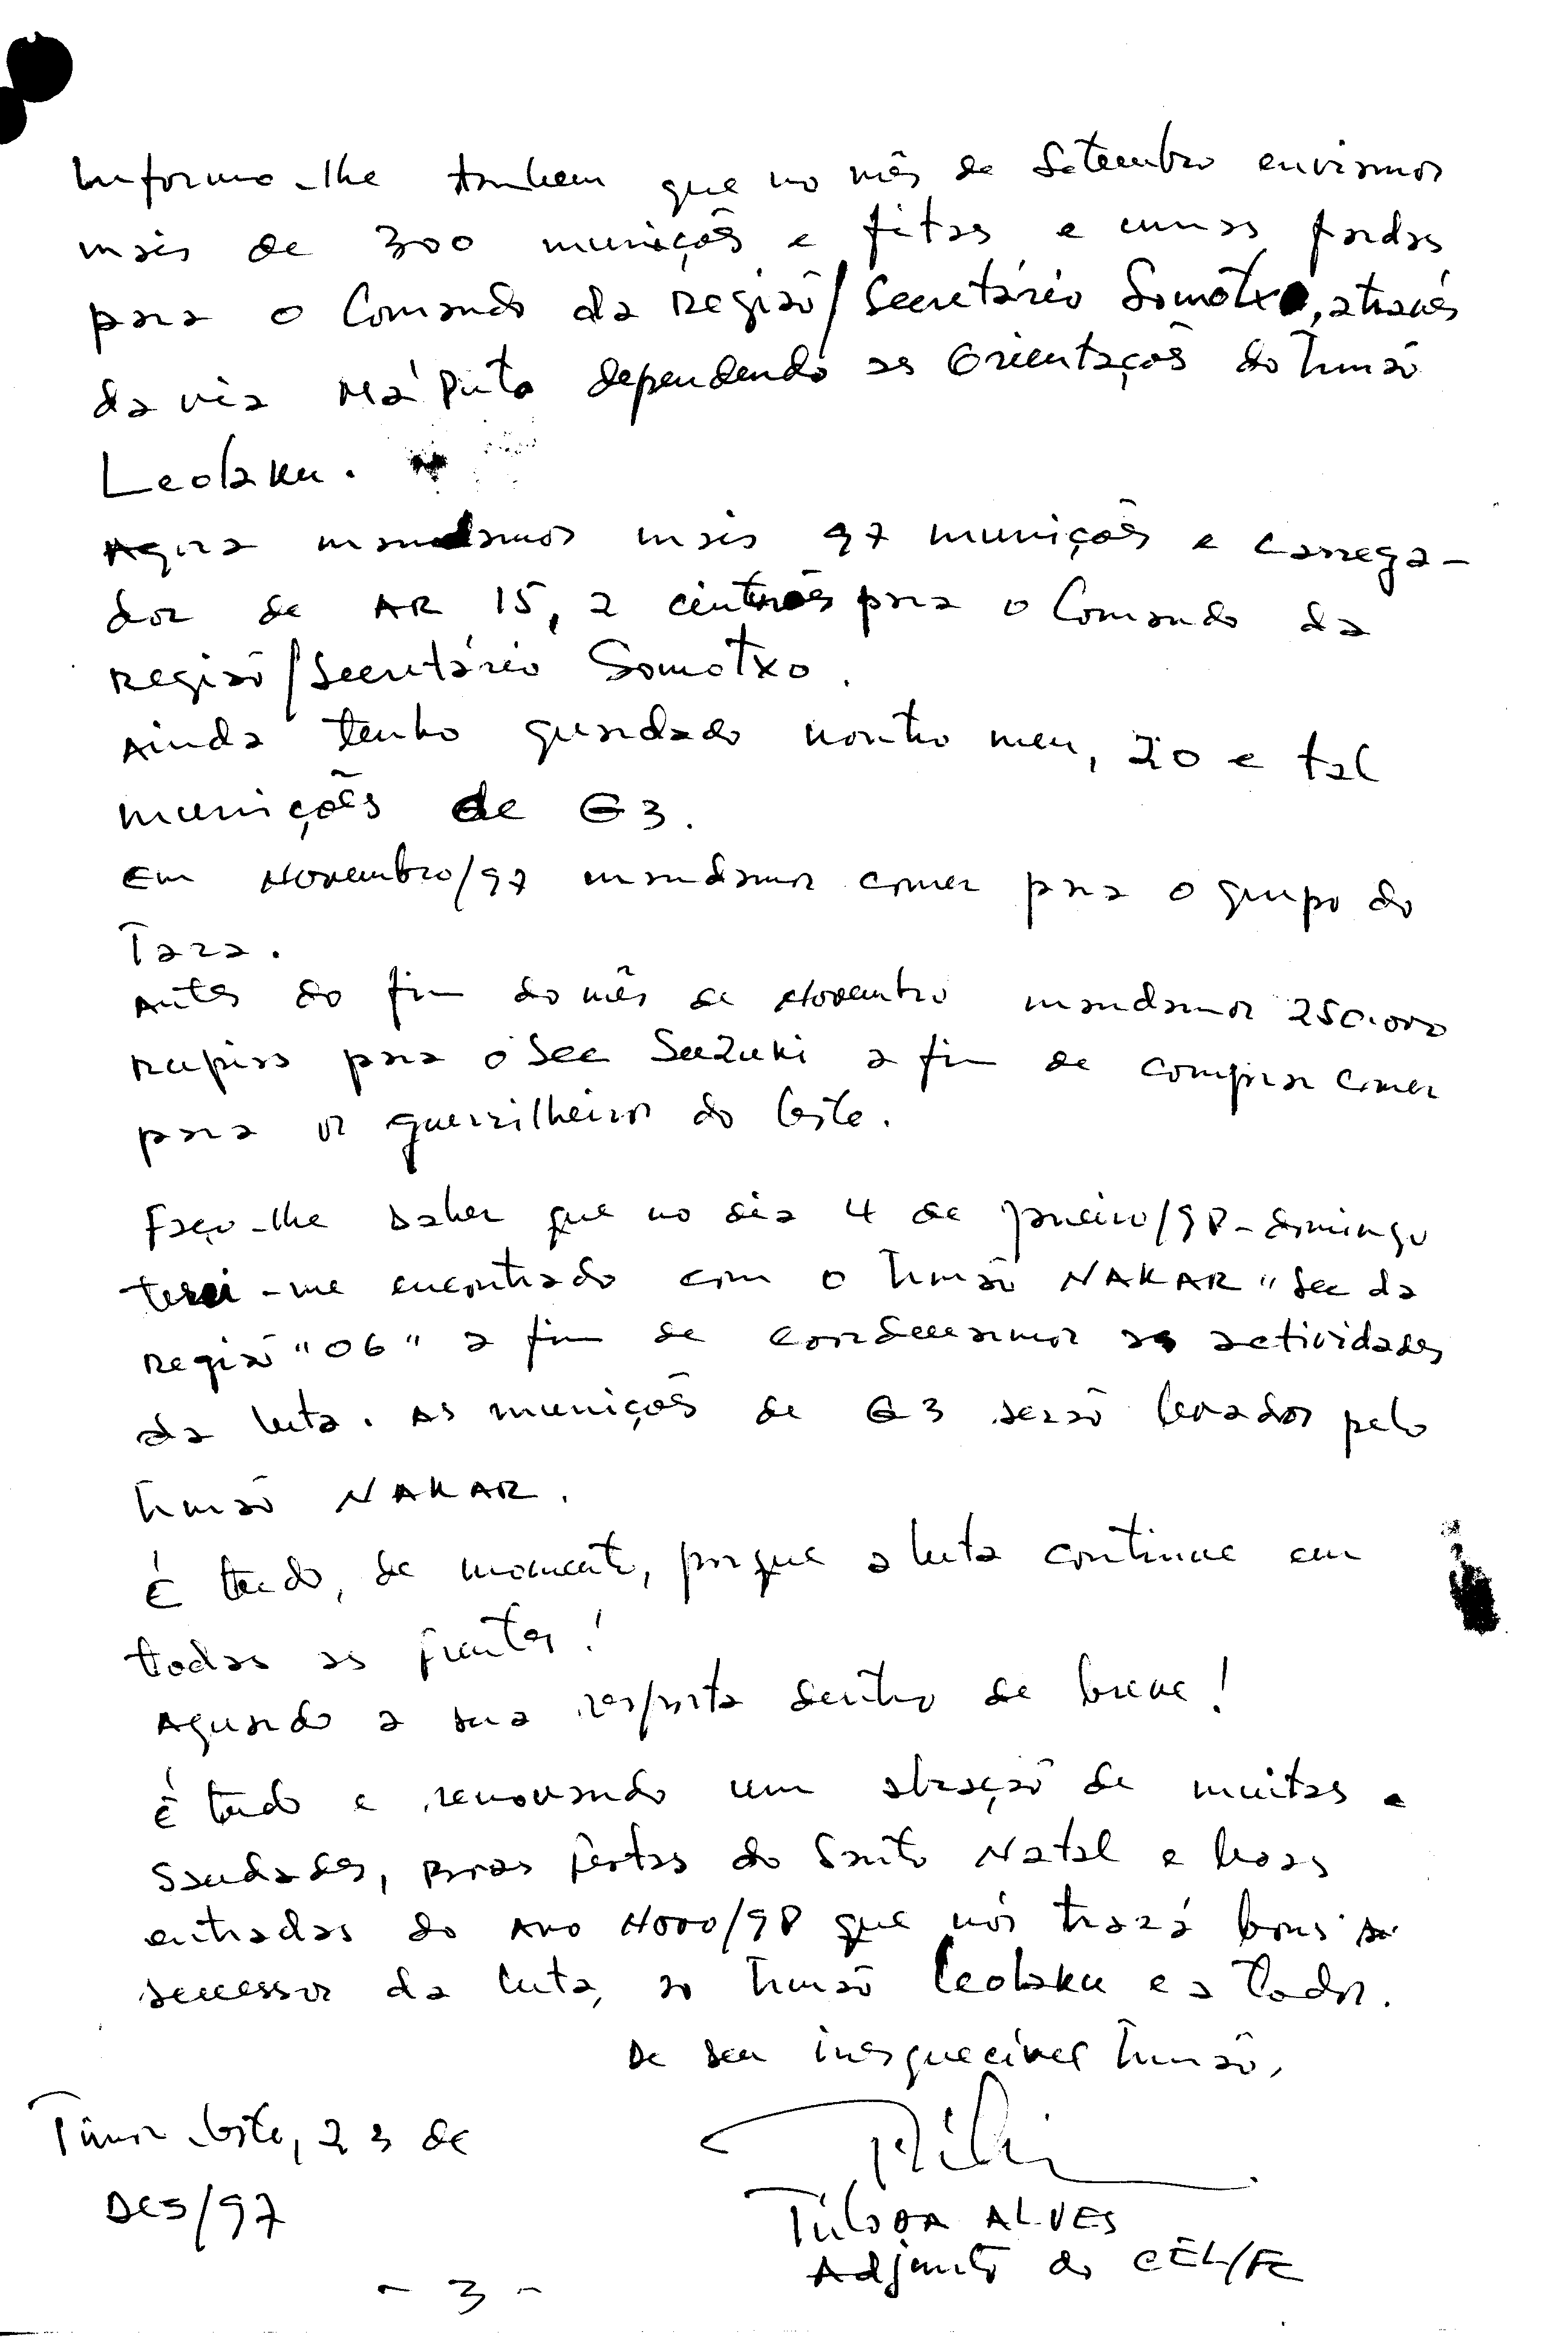 Informo-lhe tambem que no mês de Setembro enviamos
mais de 300 munições e fitas e umas fardas
para o Comando da Região/Secretário Somotxo, através
da via Má Puto dependendo as Orientações do Irmão
Leolaku.
Agora mandamos mais 97 munições e carrega-
dor de AR 15, 2 cintrões para o Comando da
Região/Secretário Somotxo.
Ainda tenho guardado noutro meu, 20 e tal
munições de G3.
Em Novembro/97 mandamos comer para o grupo do
Tara.
Antes do fim do mês de Novembro mandamos 250.000
Rupias para o Sec Suzuki a fim de comprar comer
para os guerrilheiros do leste.
Faço-lhe saber que no dia 4 de Janeiro/98-domingo
terei-me encontrado com o Irmão NAKAR "Sec da
Região "06" a fim de as actividades
da luta. As munições de G3 serão levados pelo
Irmão NAKAR.
É tudo, de momento, porque a luta continue em
todas as frentes!
Aguardo a sua resposta dentro de breve!
É tudo e renovando um abração de muitas
saudades, Boas festas do Santo Natal e boas
entradas do Ano Novo/98 que nós trará bons
sucessos da luta, ao Irmão Leolaku e a Todos.
De seu inesquecível Irmão,
Timor-Leste, 23 de
DES/97
ALVES
Adjunto do CEL/FC
- 3 -